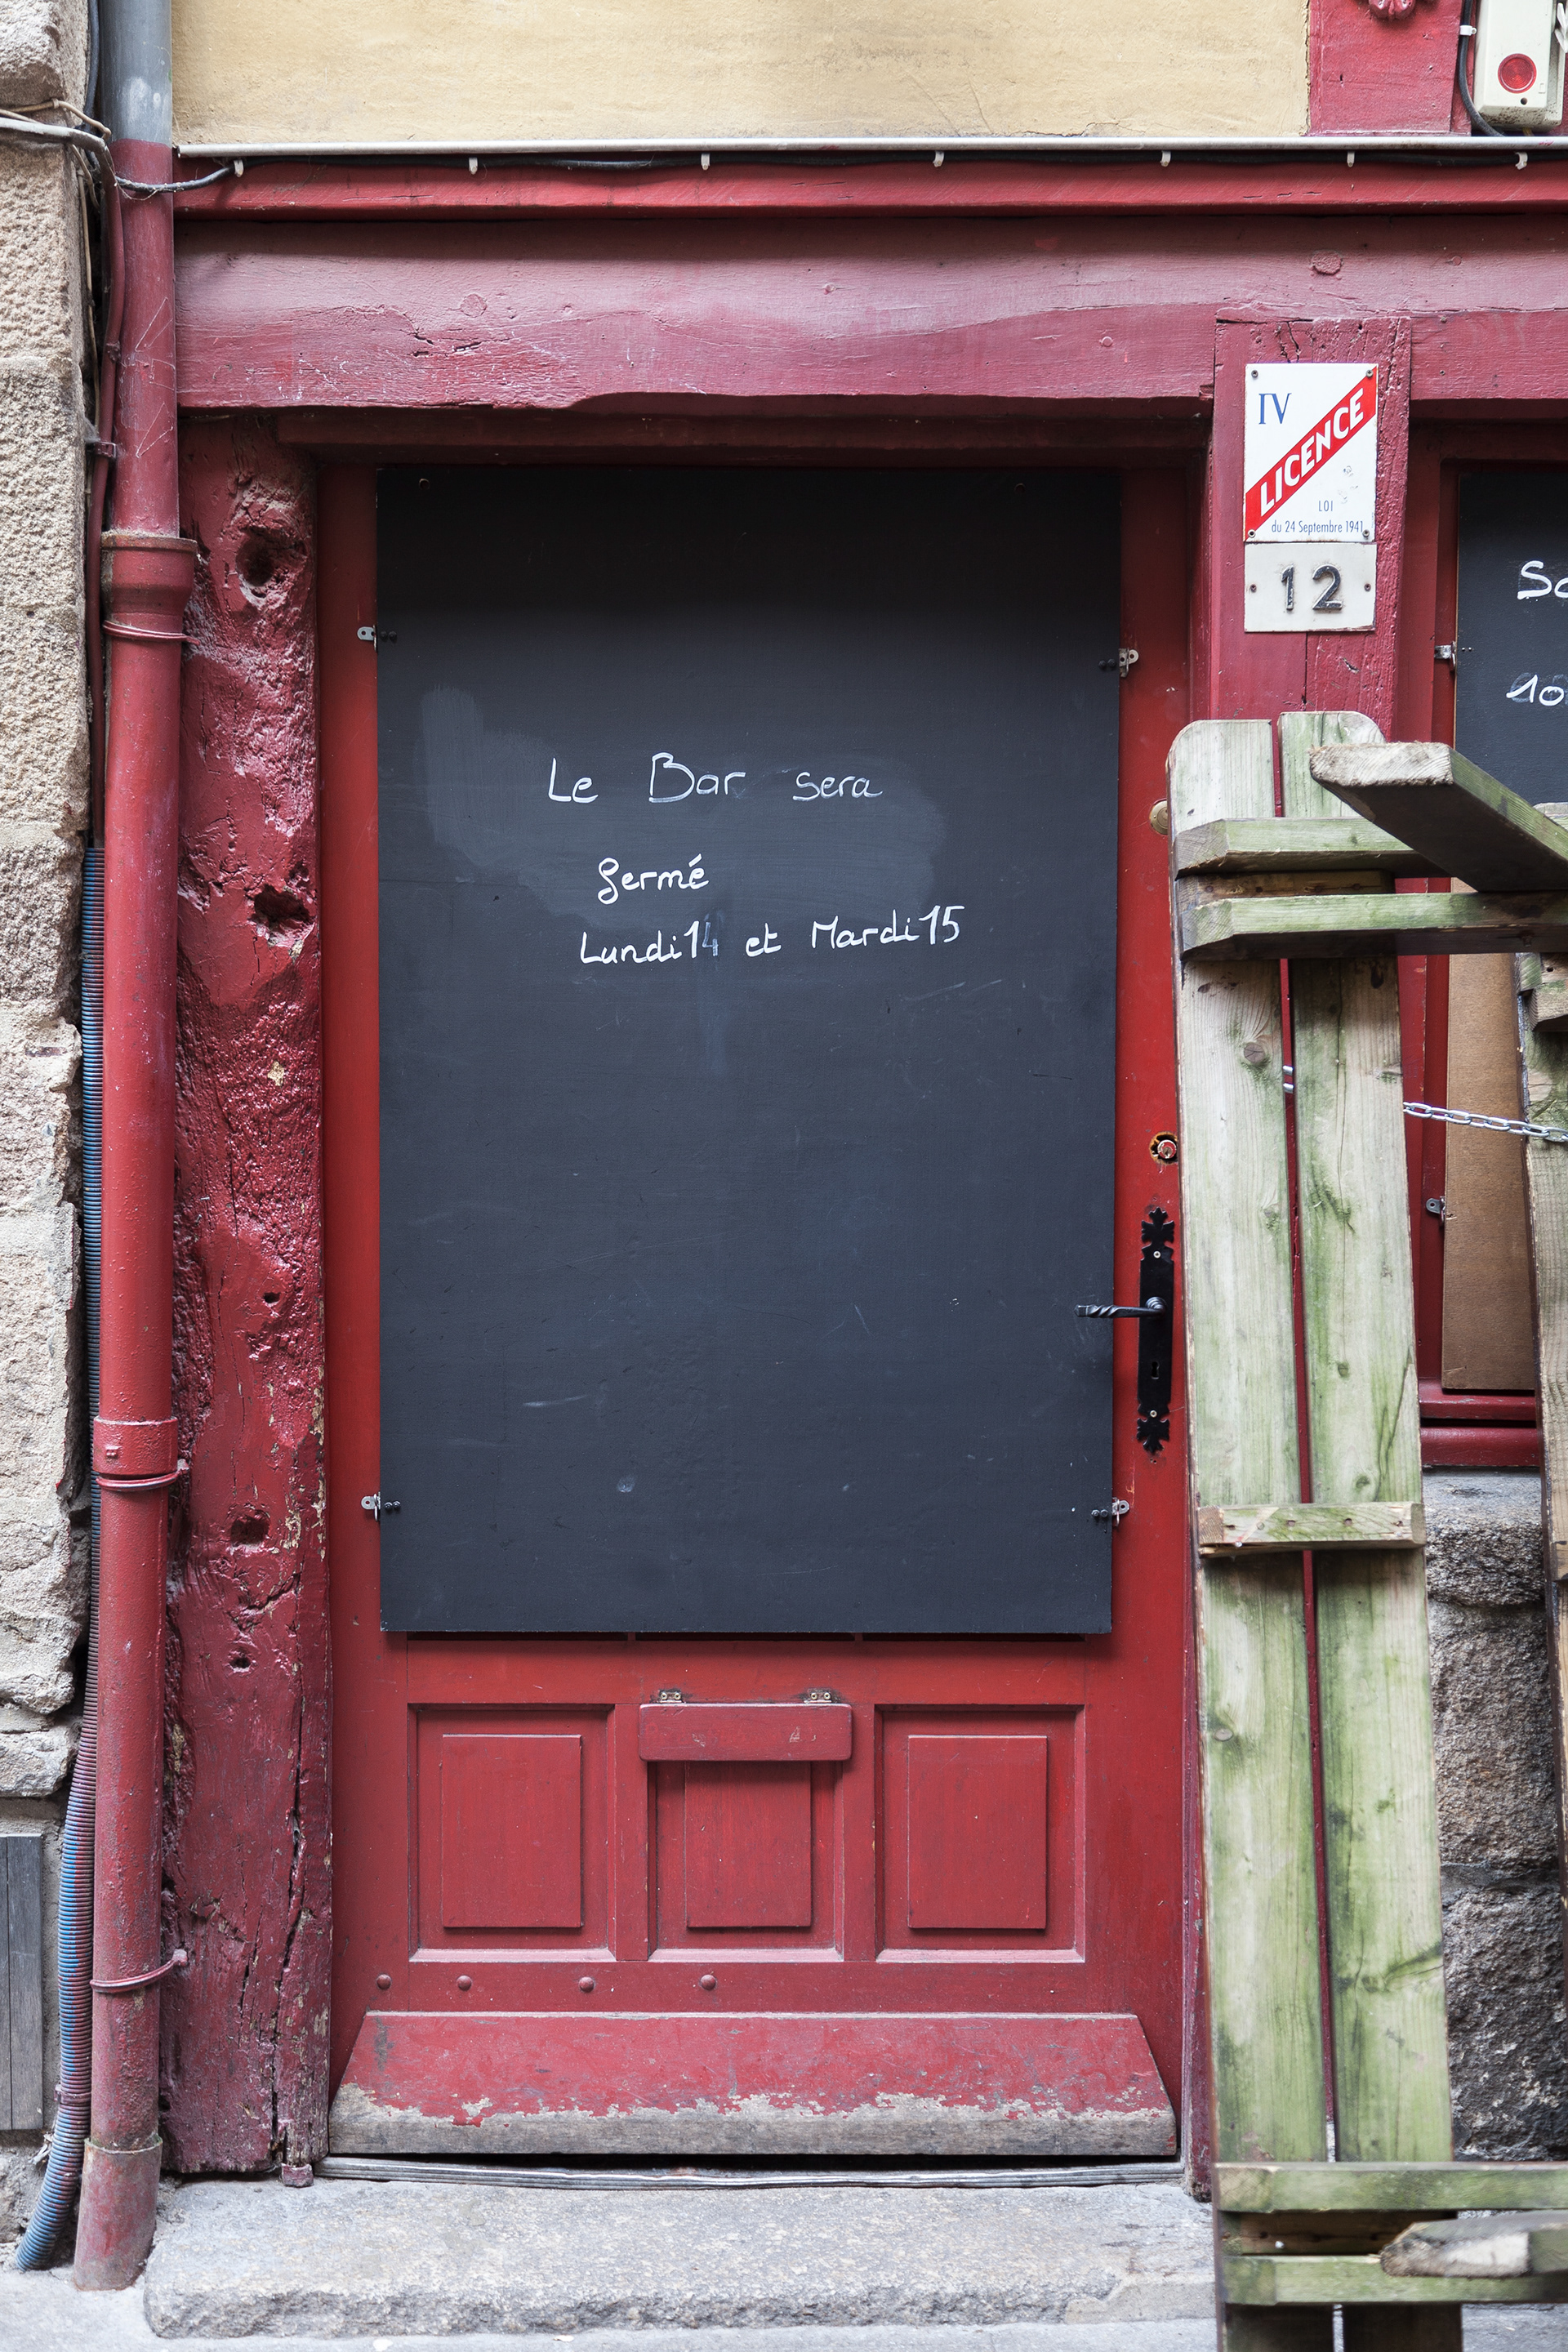 IV
LICENCE
LOI
du 24 Septembre 1941
12
Le Bar sera
fermé
Lundi 14 et Mardi 15